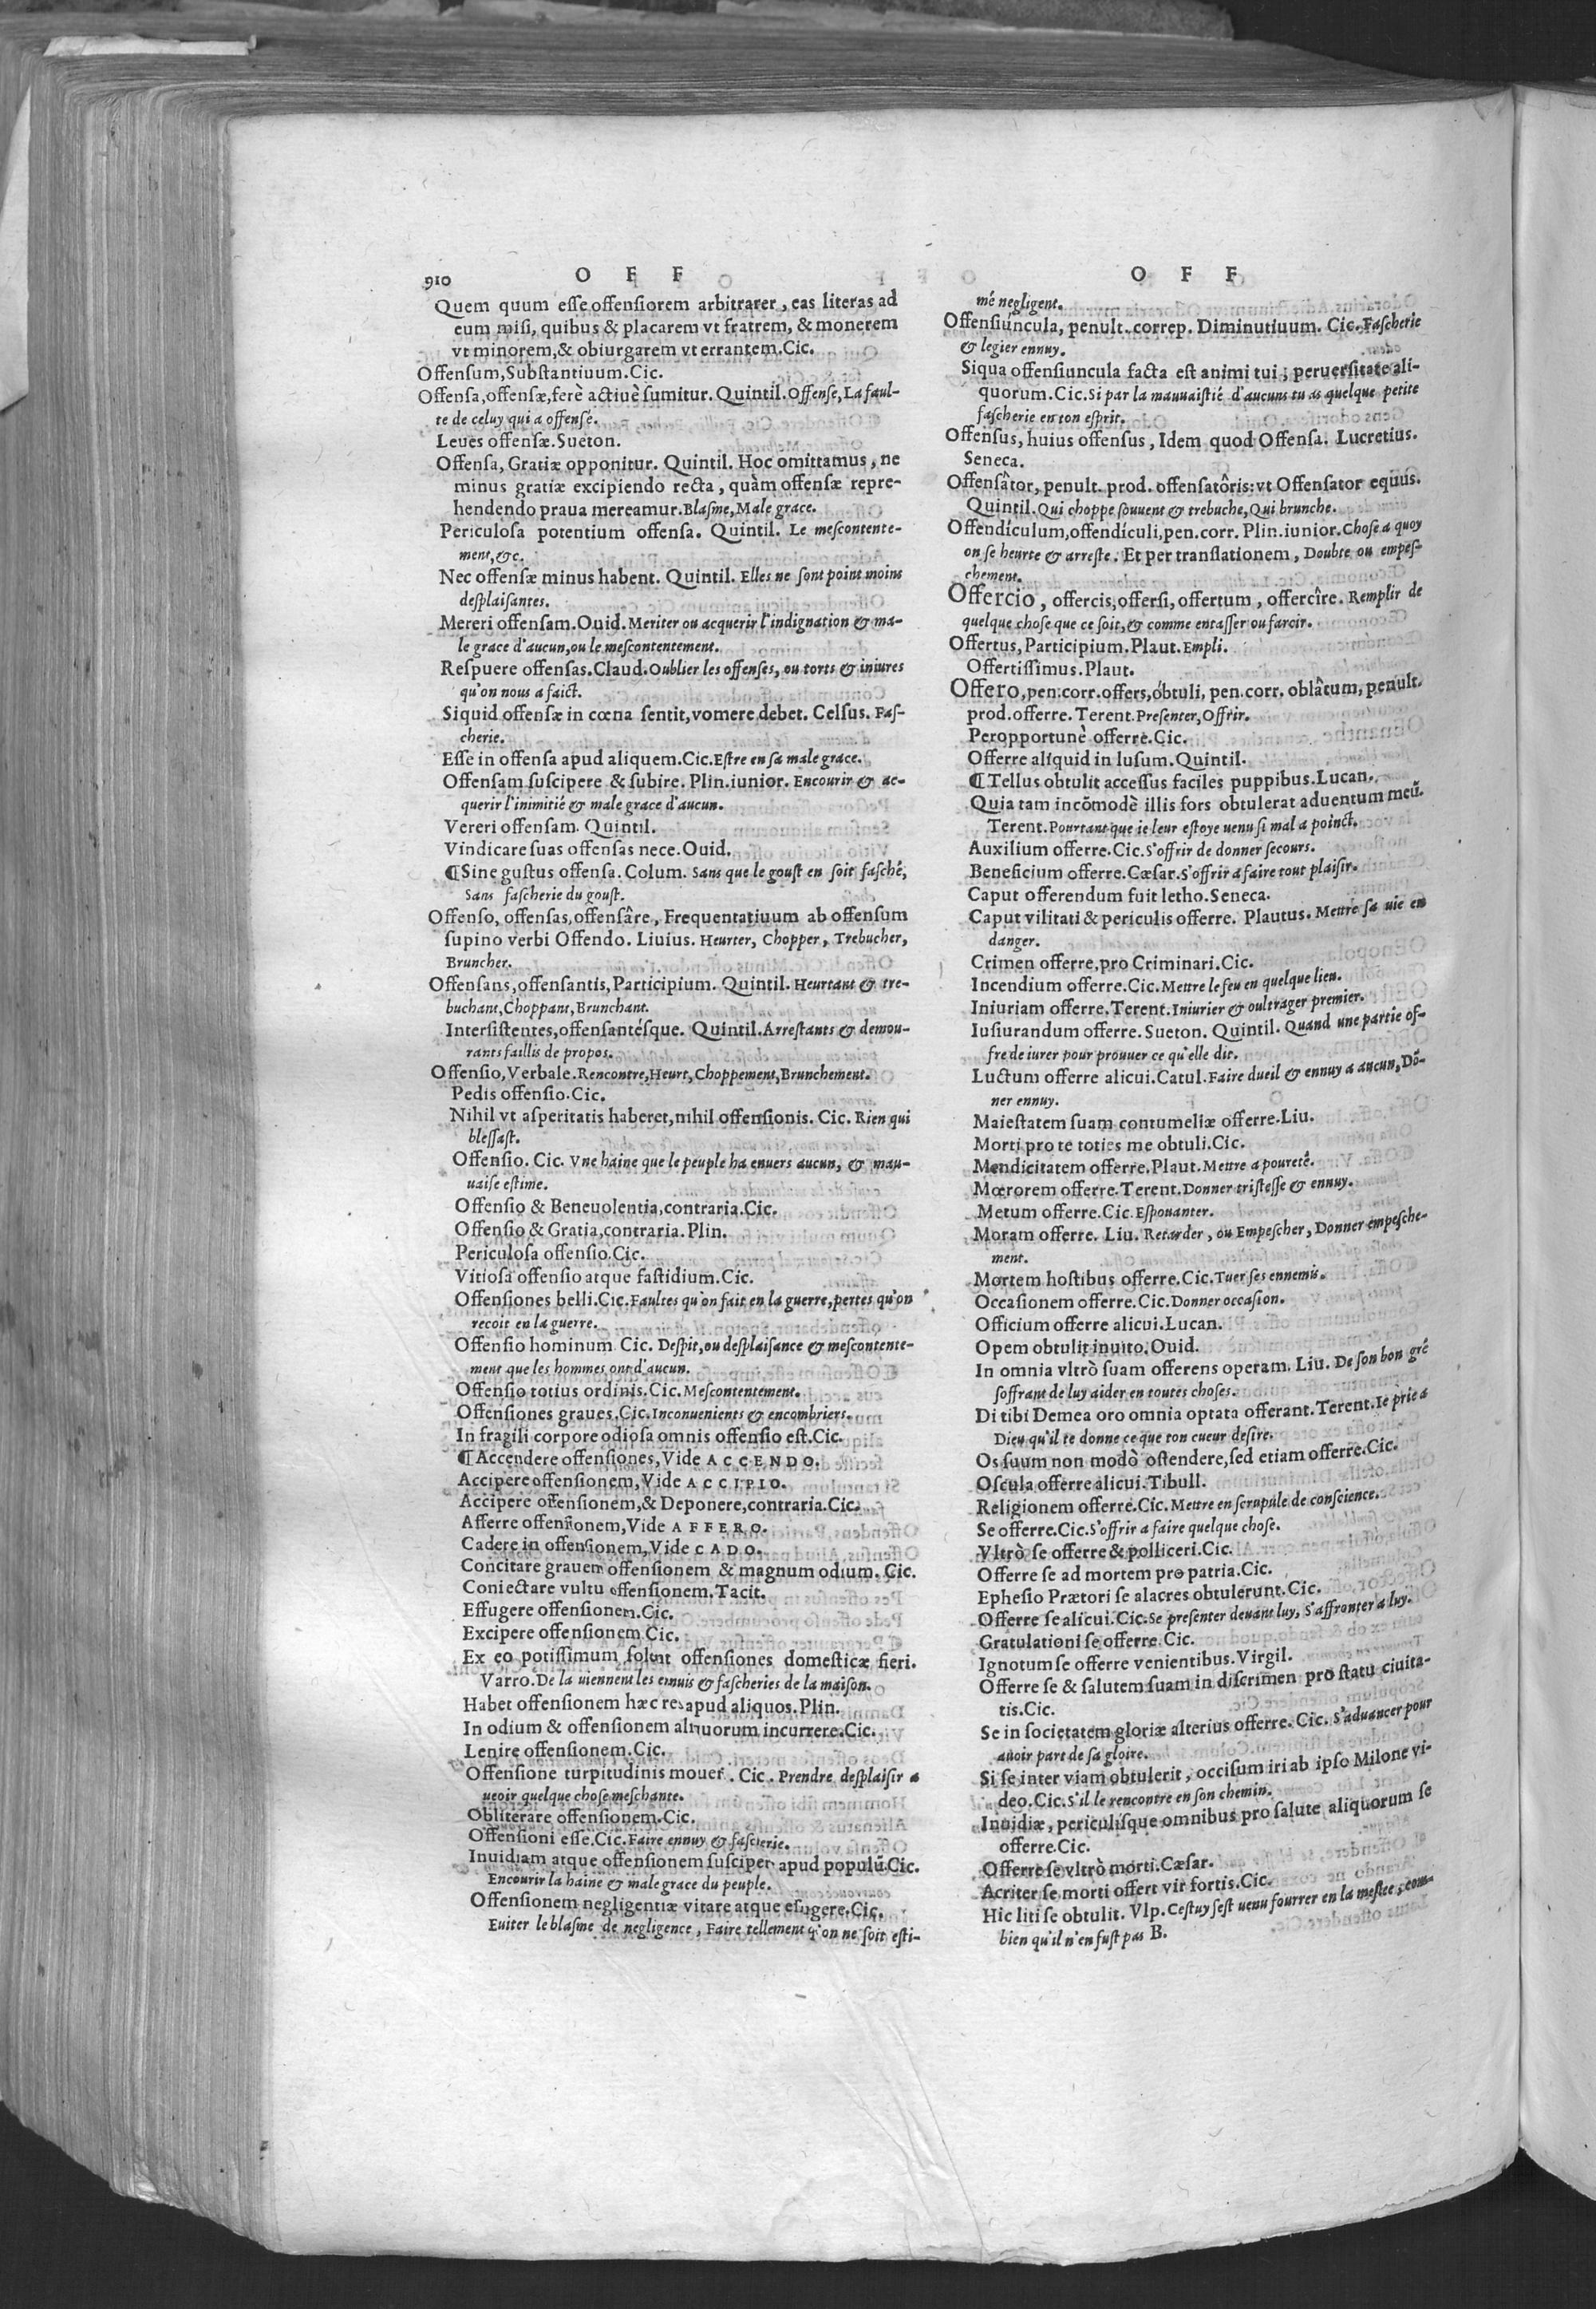 910
O F F
Quem quum esse offensiorem arbitrarer, eas literas ad
eum misi, quibus & placarem vt fratrem, & monerem
vt minorem, & obiurgarem vt errantem. Cic.
Offensum, Substantiuum. Cic.
Offensa, offensæ, ferè actiuè sumitur. Quintil. Offense, La faul-
te de celuy qui a offensé.
Leues offensæ. Sueton.
Offensa, Gratiæ opponitur. Quintil. Hoc omittamus, ne
minus gratiæ excipiendo recta, quàm offensæ repre-
hendendo praua mereamur. Blasme, Male grace.
Periculosa potentium offensa. Quintil. Le mescontente-
ment, &c.
Nec offensæ minus habent. Quintil. Elles ne sont point moins
desplaisantes.
Mereri offensam. Ouid. Meriter ou acquerir l'indignation & ma-
le grace d'aucun, ou le mescontentement.
Respuere offensas. Claud. Oublier les offenses, ou torts & iniures
qu'on nous a faict.
Siquid offensæ in cœna sentit, vomere debet. Celsus. Fas-
cherie.
Esse in offensa apud aliquem. Cic. Estre en sa male grace.
Offensam suscipere & subire. Plin. iunior. Encourir & ac-
querir l'inimitié & male grace d'aucun.
Vereri offensam. Quintil.
Vindicare suas offensas nece. Ouid.
¶ Sine gustus offensa. Colum. Sans que le goust en soit fasché,
Sans fascherie du goust.
Offenso, offensas, offensâre, Frequentatiuum ab offensum
supino verbi Offendo. Liuius. Heurter, Chopper, Trebucher,
Bruncher.
Offensans, offensantis, Participium. Quintil. Heurtant & tre-
buchant, Choppant, Brunchant.
Intersistentes, offensantésque. Quintil. Arrestants & demou-
rants faillis de propos.
Offensio, Verbale. Rencontre, Heurt, Choppement, Brunchement.
Pedis offensio. Cic.
Nihil vt asperitatis haberet, nihil offensionis. Cic. Rien qui
blessast.
Offensio. Cic. Vne haine que le peuple ha enuers aucun, & mau-
uaise estime.
Offensio & Beneuolentia, contraria. Cic.
Offensio & Gratia, contraria. Plin.
Periculosa offensio. Cic.
Vitiosa offensio atque fastidium. Cic.
Offensiones belli. Cic. Faultes qu'on fait en la guerre, pertes qu'on
recoit en la guerre.
Offensio hominum. Cic. Despit, ou desplaisance & mescontente-
ment que les hommes ont d'aucun.
Offensio totius ordinis. Cic. Mescontentement.
Offensiones graues. Cic. Inconuenients & encombriers.
In fragili corpore odiosa omnis offensio est. Cic.
¶ Accendere offensiones, Vide ACCENDO.
Accipere offensionem, Vide ACCIPIO.
Accipere offensionem, & Deponere, contraria. Cic.
Afferre offensionem, Vide AFFERO.
Cadere in offensionem, Vide CADO.
Concitare grauem offensionem & magnum odium. Cic.
Coniectare vultu offensionem. Tacit.
Effugere offensionem. Cic.
Excipere offensionem. Cic.
Ex eo potissimum solent offensiones domesticæ fieri.
Varro. De la uiennent les ennuis & fascheries de la maison.
Habet offensionem hæc res apud aliquos. Plin.
In odium & offensionem aliquorum incurrere. Cic.
Lenire offensionem. Cic.
Offensione turpitudinis moueri. Cic. Prendre desplaisir a
ueoir quelque chose meschante.
Obliterare offensionem. Cic.
Offensioni esse. Cic. Faire ennuy & fascherie.
Inuidiam atque offensionem suscipere apud populũ. Cic.
Encourir la haine & male grace du peuple.
Offensionem negligentiæ vitare atque effugere. Cic.
Euiter le blasme de negligence, Faire tellement qu'on ne soit esti-
O F F
mé negligent.
Offensiúncula, penult. correp. Diminutiuum. Cic. Fascherie
& legier ennuy.
Siqua offensiuncula facta est animi tui; peruersitate ali-
quorum. Cic. Si par la mauuaistié d'aucuns tu as quelque petite
fascherie en ton esprit.
Offensus, huius offensus, Idem quod Offensa. Lucretius.
Seneca.
Offensâtor, penult. prod. offensatôris: vt Offensator equus.
Quintil. Qui choppe souuent & trebuche, Qui brunche.
Offendículum, offendículi, pen. corr. Plin. iunior. Chose a quoy
on se heurte & arreste. Et per translationem, Doubte ou empes-
chement.
Offercio, offercis, offersi, offertum, offercîre. Remplir de
quelque chose que ce soit, & comme entasser ou farcir.
Offertus, Participium. Plaut. Empli.
Offertissimus. Plaut.
Offero, pen. corr. offers, óbtuli, pen. corr. oblâtum, penult.
prod. offerre. Terent. Presenter, Offrir.
Peropportunè offerre. Cic.
Offerre aliquid in lusum. Quintil.
¶ Tellus obtulit accessus faciles puppibus. Lucan.
Quia tam incõmodè illis fors obtulerat aduentum meũ.
Terent. Pourtant que ie leur estoye uenu si mal a poinct.
Auxilium offerre. Cic. S'offrir de donner secours.
Beneficium offerre. Cæsar. S'offrir a faire tout plaisir.
Caput offerendum fuit letho. Seneca.
Caput vilitati & periculis offerre. Plautus. Mettre sa uie en
danger.
Crimen offerre, pro Criminari. Cic.
Incendium offerre. Cic. Mettre le feu en quelque lieu.
Iniuriam offerre. Terent. Iniurier & oultrager premier.
Iusiurandum offerre. Sueton. Quintil. Quand une partie of-
fre de iurer pour prouuer ce qu'elle dit.
Luctum offerre alicui. Catul. Faire dueil & ennuy a aucun, Dõ-
ner ennuy.
Maiestatem suam contumeliæ offerre. Liu.
Morti pro te toties me obtuli. Cic.
Mendicitatem offerre. Plaut. Mettre a poureté.
Mœrorem offerre. Terent. Donner tristesse & ennuy.
Metum offerre. Cic. Espouanter.
Moram offerre. Liu. Retarder, ou Empescher, Donner empesche-
ment.
Mortem hostibus offerre. Cic. Tuer ses ennemis.
Occasionem offerre. Cic. Donner occasion.
Officium offerre alicui. Lucan.
Opem obtulit inuito. Ouid.
In omnia vltrò suam offerens operam. Liu. De son bon gré
soffrant de luy aider en toutes choses.
Di tibi Demea oro omnia optata offerant. Terent. Ie prie a
Dieu qu'il te donne ce que ton cueur desire.
Os suum non modò ostendere, sed etiam offerre. Cic.
Oscula offerre alicui. Tibull.
Religionem offerre. Cic. Mettre en scrupule de conscience.
Se offerre. Cic. S'offrir a faire quelque chose.
Vltrò se offerre & polliceri. Cic.
Offerre se ad mortem pro patria. Cic.
Ephesio Prætori se alacres obtulerunt. Cic.
Offerre se alicui. Cic. Se presenter deuant luy, S'affronter a luy.
Gratulationi se offerre. Cic.
Ignotum se offerre venientibus. Virgil.
Offerre se & salutem suam in discrimen pro statu ciuita-
tis. Cic.
Se in societatem gloriæ alterius offerre. Cic. S'aduancer pour
auoir part de sa gloire.
Si se inter viam obtulerit, occisum iri ab ipso Milone vi-
deo. Cic. S'il le rencontre en son chemin.
Inuidiæ, periculisque omnibus pro salute aliquorum se
offerre. Cic.
Offerre se vltrò morti. Cæsar.
Acriter se morti offert vir fortis. Cic.
Hic liti se obtulit. Vlp. Cestuy sest uenu fourrer en la meslee, com-
bien qu'il n'en fust pas B.